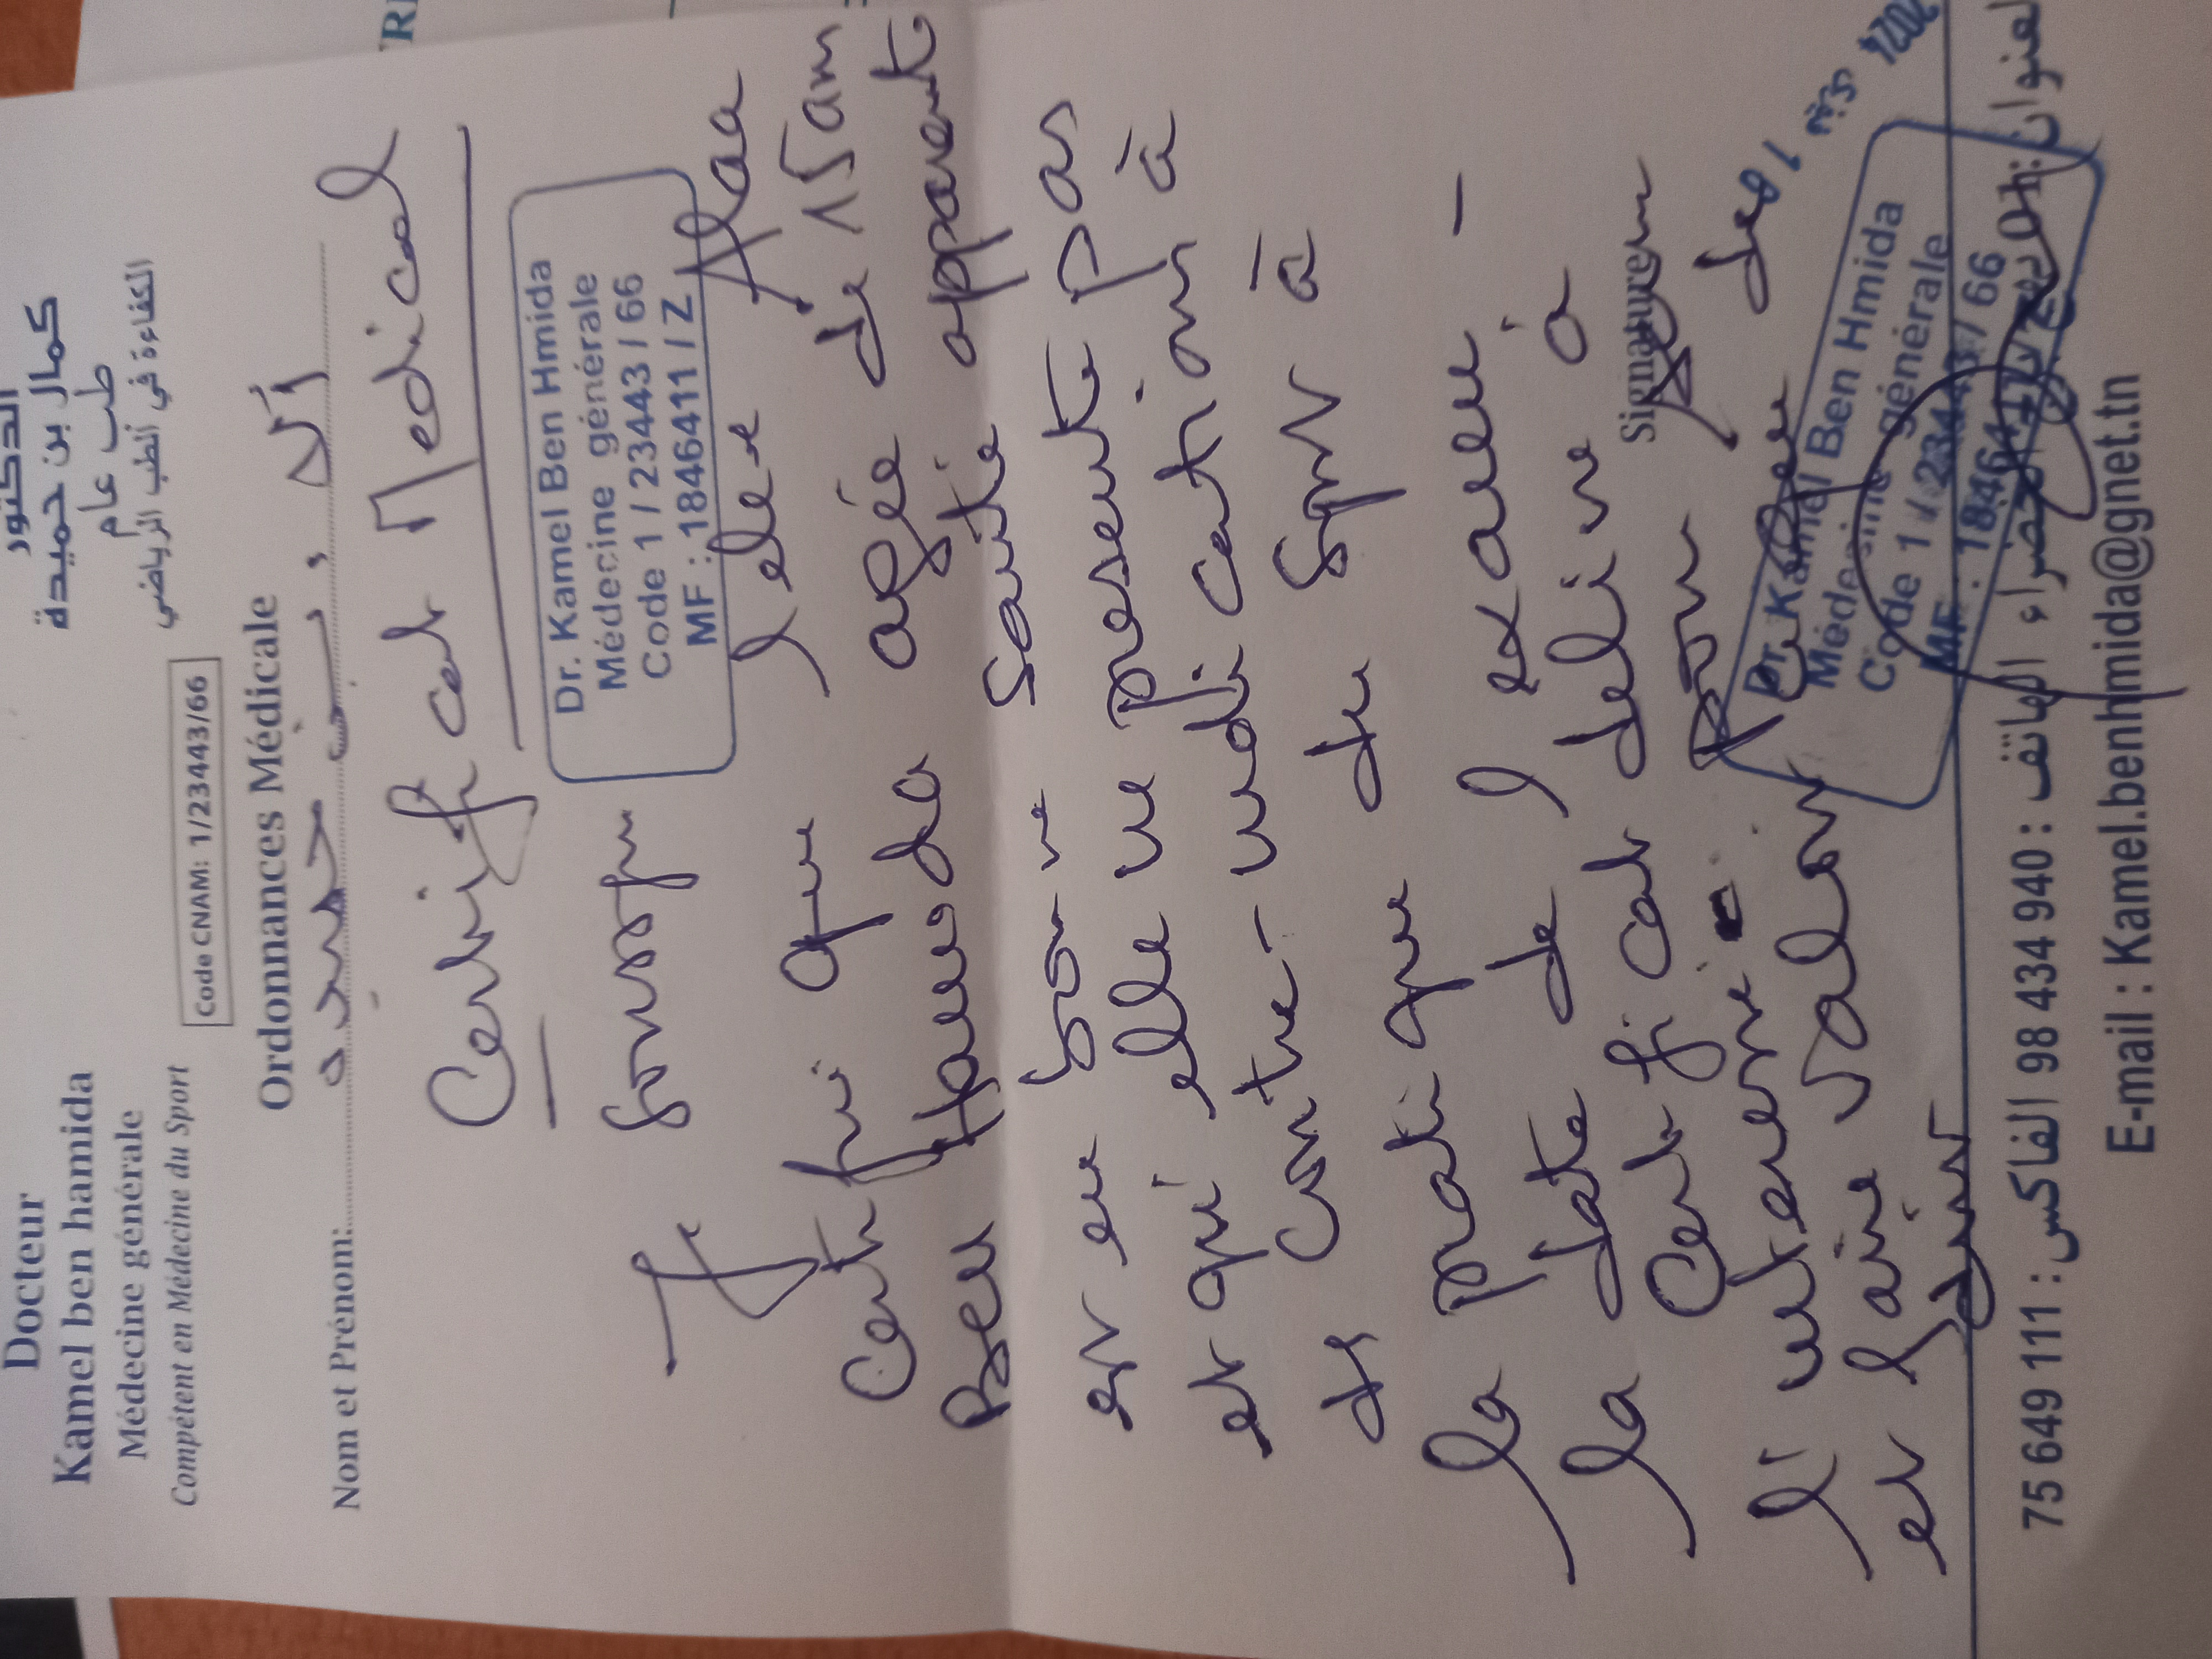 Docteur
Kamel ben hamida
Médecine générale
Compétent en Médecine du Sport
الدكتور
كمال بن حميدة
طب عام
الكفاءة في الطب الرياضي
Code CNAM: 1/23443/66
Ordonnances Médicale
Nom et Prénom:
Certificat Medical
Dr. Kamel Ben Hmida
Médecine générale
Code 1 / 23443 / 66
MF : 1846411 / Z
Je soussigné
Certifie que l'élève Alaa
Ben Hamida agée de 15 ans
est en bonne santé apparente
et qui elle ne présente pas
de contre-indication à
la pratique du sport à
la date de l'examen -
Certificat délivré à
l'intéressé pour
et faire valoir
droit
Signature
Dr. Kamel Ben Hmida
Médecine générale
Code 1 / 23443 / 66
MF : 1846411 / Z
75 649 111 : الهاتف : 98 434 940 الفاكس
E-mail : Kamel.benhmida@gnet.tn